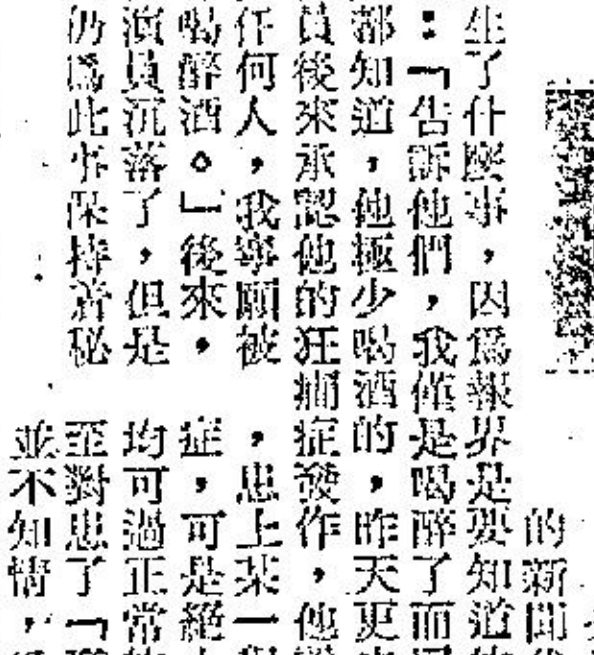 的新聞
生了什麼事，因爲報界是要知道
：「告訴他們，我僅是喝醉了而
都知道，他極少喝酒的，昨天更
員後來承認他的狂癇症發作，他
任何人，我寧願被
喝醉酒。」後來，
演員沉落了，但是
仍爲此事保持着秘
，患上某一
症，可是絕
均可過正常
至對患了「
並不知情，